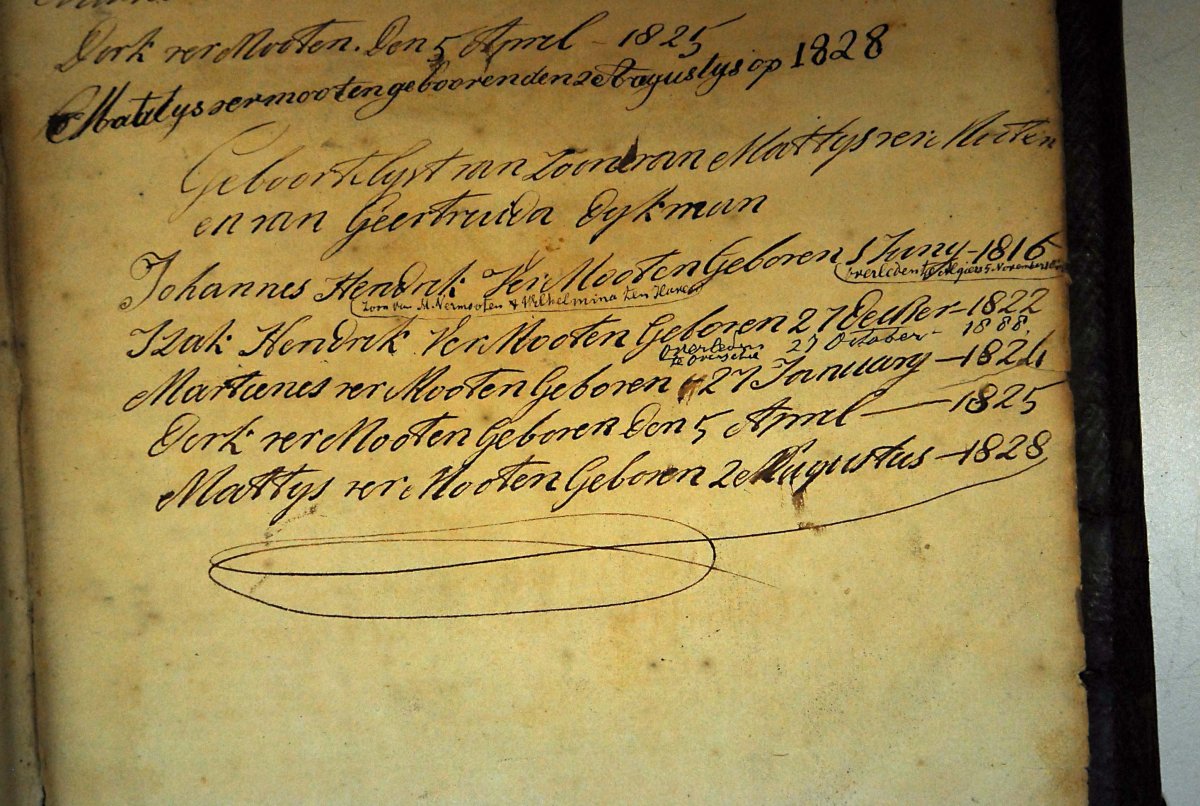 Dork ver Mooten. Den 5 April - 1825
Mattys vermooten gebooren den 2e Aguslys op 1828
Geboortelyst van Zoone van Mattys ver Mooten
en van Geertruida Dykman
Johannes Hendrik Ver Mooten Geboren 1 Juny - 1816
Zoon van M. Vermooten & Wilhelmina ten Haven
overleden te Algiers 5 November
Izak Hendrik Ver Mooten Geboren 27 December - 1822
Overleden te Overschie 27 October - 1888
Martienes ver Mooten Geboren 27 January - 1824
Dork ver Mooten Geboren Den 5 April - 1825
Mattys ver Mooten Geboren 2e Augustus - 1828